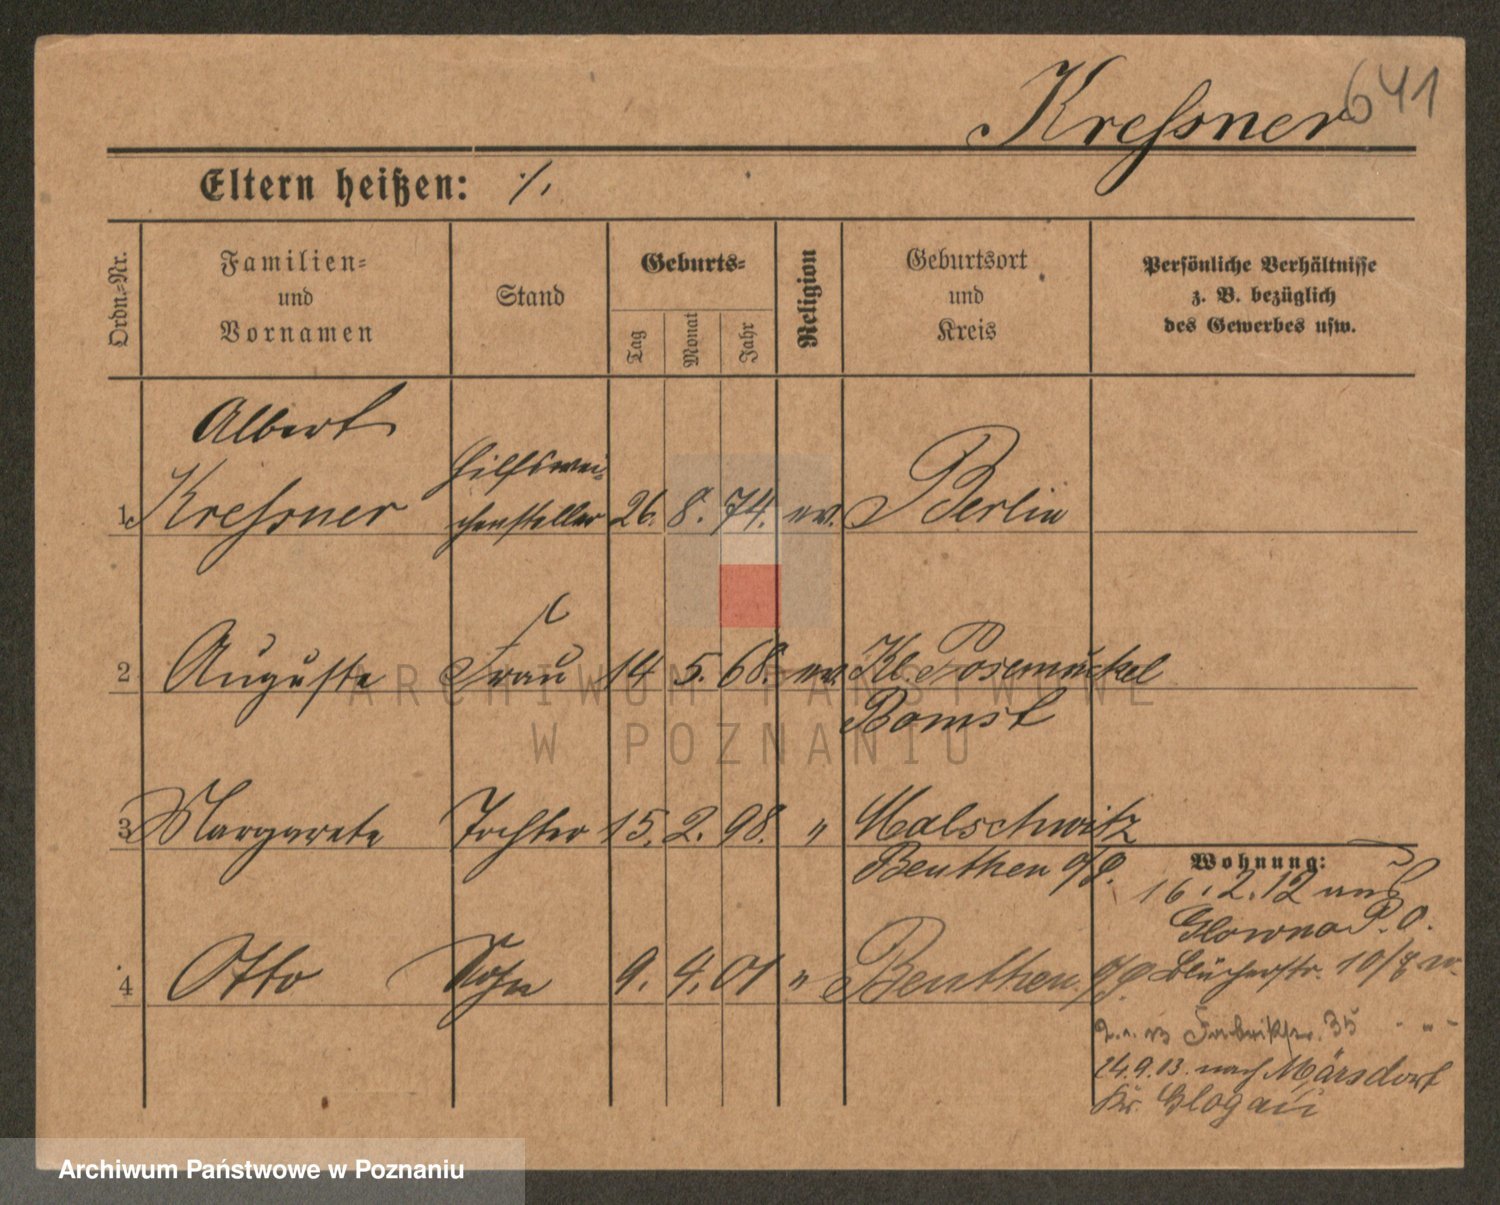 Kreſsner 641
Eltern heißen: ·/.
Ordn.-Nr.
Familien-
und
Vornamen
Stand
Geburts-
Tag
Monat
Jahr
Religion
Geburtsort
und
Kreis
Persönliche Verhältnisse
z. B. bezüglich
des Gewerbes usw.
Albert
1 Kreſsner
Hilfswei-
chensteller
26. 8. 74. ev. Berlin
2 Auguste Frau 14 5. 68. ev. Kl. Posemuckel
Bomst
3 Margarete Tochter 15. 2. 98. " Malschwitz
Beuthen o/O.
4 Otto Sohn 9. 4. 01 " Beuthen. o/O.
Wohnung:
16. 2. 12 aus
Glowno P. O.
Blücherstr. 10/8
Fabrikstr. 35
24.9.13. nach Märsdorf
Kr. Glogau
ARCHIWUM PAŃSTWOWE
W POZNANIU
Archiwum Państwowe w Poznaniu